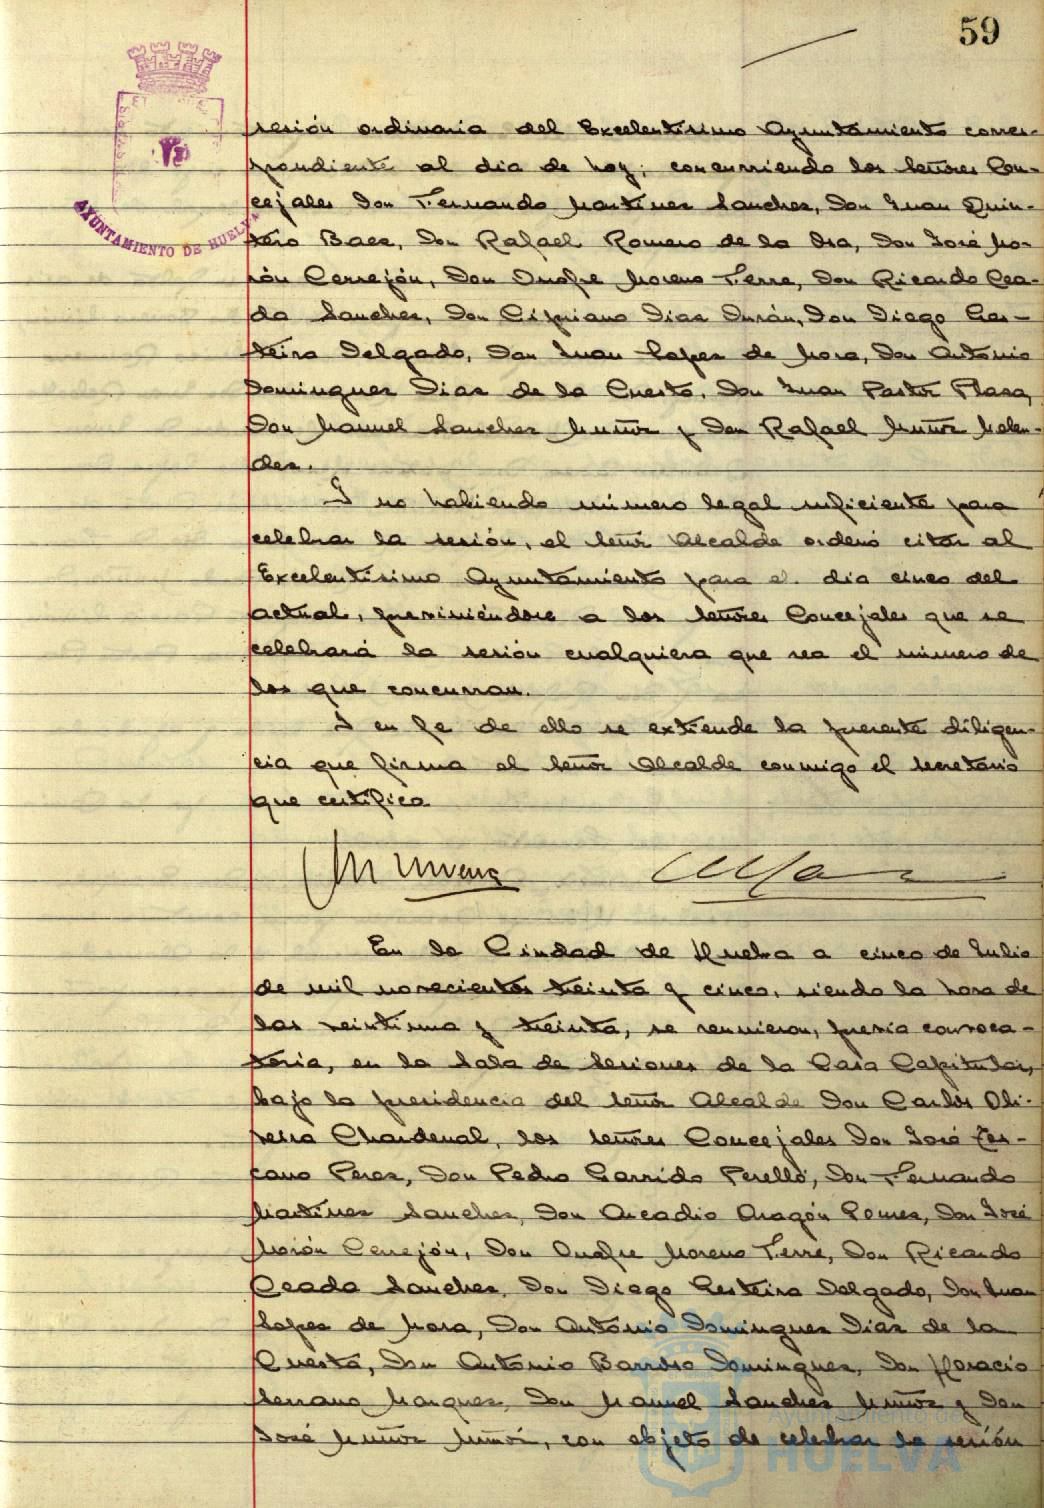 59
AYUNTAMIENTO DE HUELVA
sesión ordinaria del Excelentísimo Ayuntamiento corres-
pondiente al día de hoy; concurriendo los Señores Con-
cejales Don Fernando Martínez Sanchez, Don Juan Quin-
tero Baez, Don Rafael Romero de la Osa, Don José Mo-
rón Cerrejón, Don Onofre Moreno Terre, Don Ricardo Cea-
da Sanchez, Don Cipriano Diaz Durán, Don Diego Ges-
teira Delgado, Don Juan Lopez de Mora, Don Antonio
Dominguez Diaz de la Cuesta, Don Juan Pastor Plaza,
Don Manuel Sanchez Muñoz y Don Rafael Muñoz Melen-
dez.
Y no habiendo número legal suficiente para
celebrar la sesión, el Señor Alcalde ordenó citar al
Excelentísimo Ayuntamiento para el día cinco del
actual, previniéndose a los Señores Concejales que se
celebrará la sesión cualquiera que sea el número de
los que concurran.
Y en fe de ello se extiende la presente diligen-
cia que firma el Señor Alcalde conmigo el Secretario
que certifico
En la Ciudad de Huelva a cinco de Julio
de mil novecientos treinta y cinco, siendo la hora de
las veintiuna y treinta, se reunieron, previa convoca-
toria, en la Sala de Sesiones de la Casa Capitular,
bajo la presidencia del Señor Alcalde Don Carlos Oli-
veira Chardenal, los Señores Concejales Don José Lez-
cano Perez, Don Pedro Garrido Perelló, Don Fernando
Martínez Sanchez, Don Arcadio Aragón Gomez, Don José
Morón Cerrejón, Don Onofre Moreno Terre, Don Ricardo
Ceada Sanchez, Don Diego Gesteira Delgado, Don Juan
Lopez de Mora, Don Antonio Dominguez Diaz de la
Cuesta, Don Antonio Barroso Dominguez, Don Horacio
Serrano Marquez, Don Manuel Sanchez Muñoz y Don
José Muñoz Muñoz, con objeto de celebrar la sesión
Ayuntamiento de
HUELVA